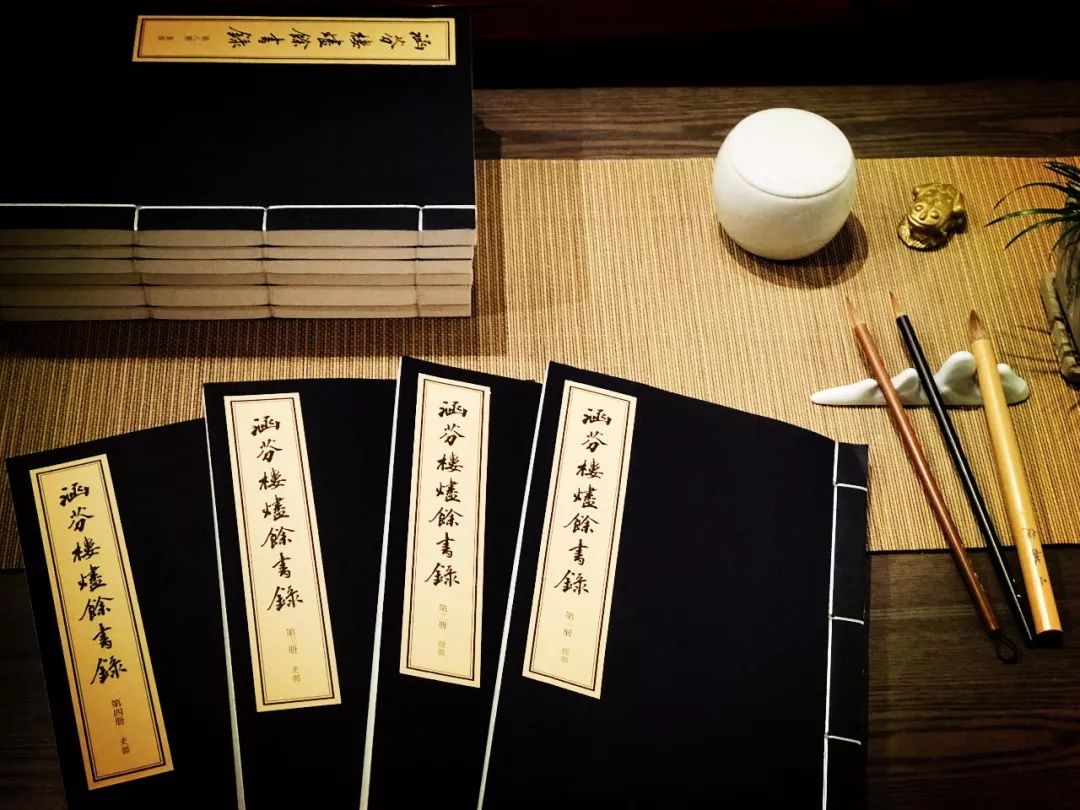 涵芬樓燼餘書錄
第八册 集部
涵芬樓燼餘書錄
第一册 經部
涵芬樓燼餘書錄
第二册 經部
涵芬樓燼餘書錄
第三册 史部
涵芬樓燼餘書錄
第四册 史部